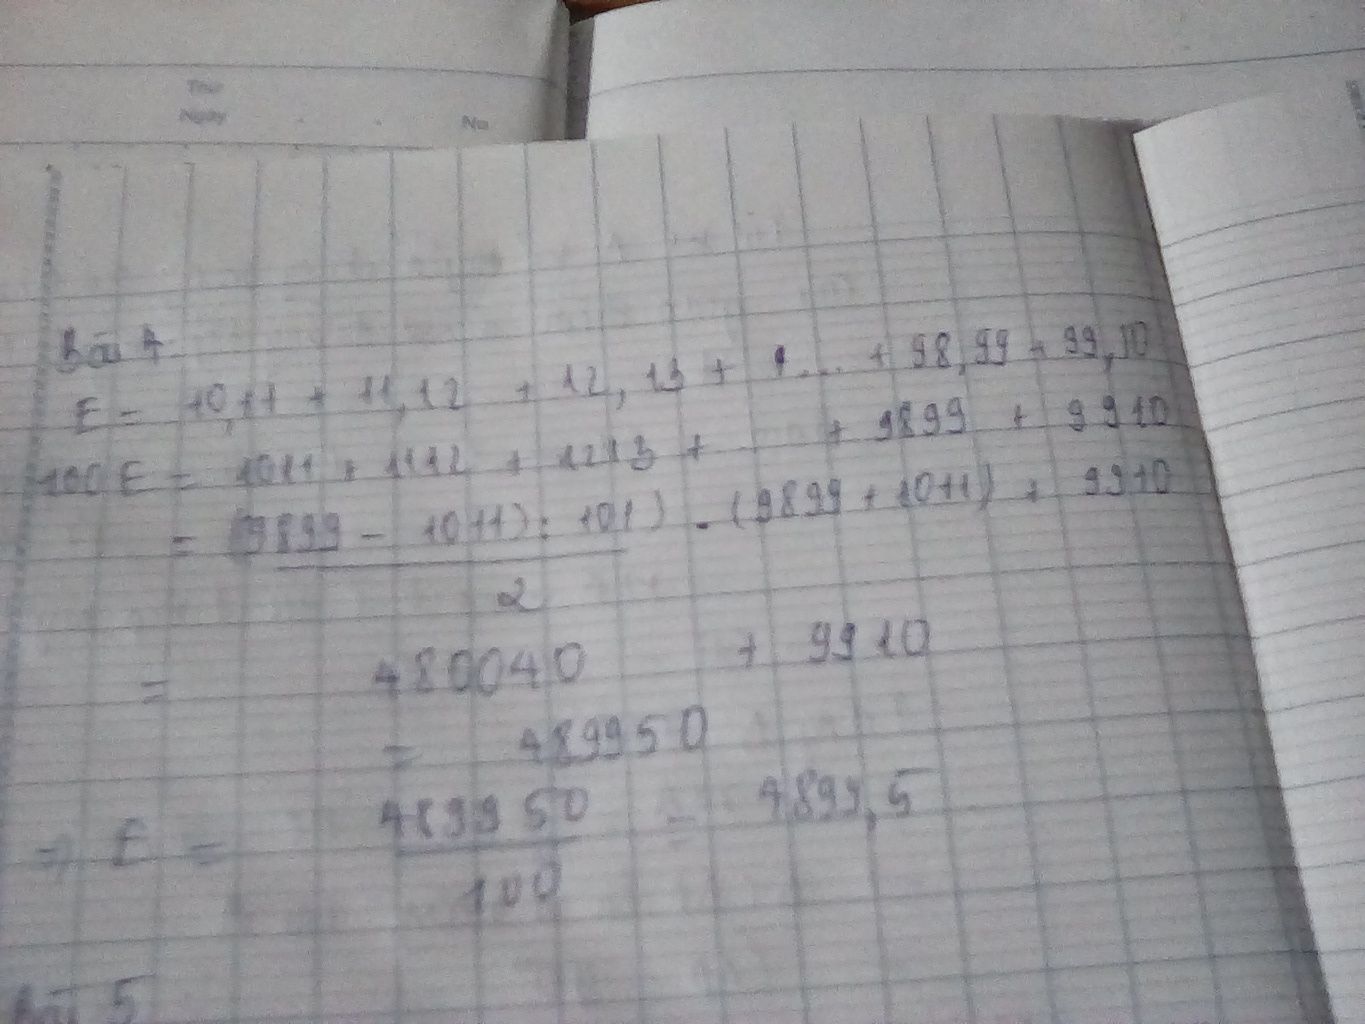 Thứ
Ngày
No
Bài 4
E = 10,11 + 11,12 + 12,13 + .... + 98,99 + 99,10
100E = 1011 + 1112 + 1213 + + 9899 + 9910
= (9899 - 1011) : 101) . (9899 + 1011) + 9910
2
= 480040 + 9910
= 489950
=> E = 489950 = 4899,5
100
Bài 5